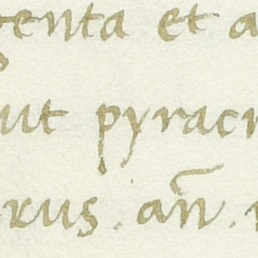 genta et a
ut pyrac
rus . an̅ .